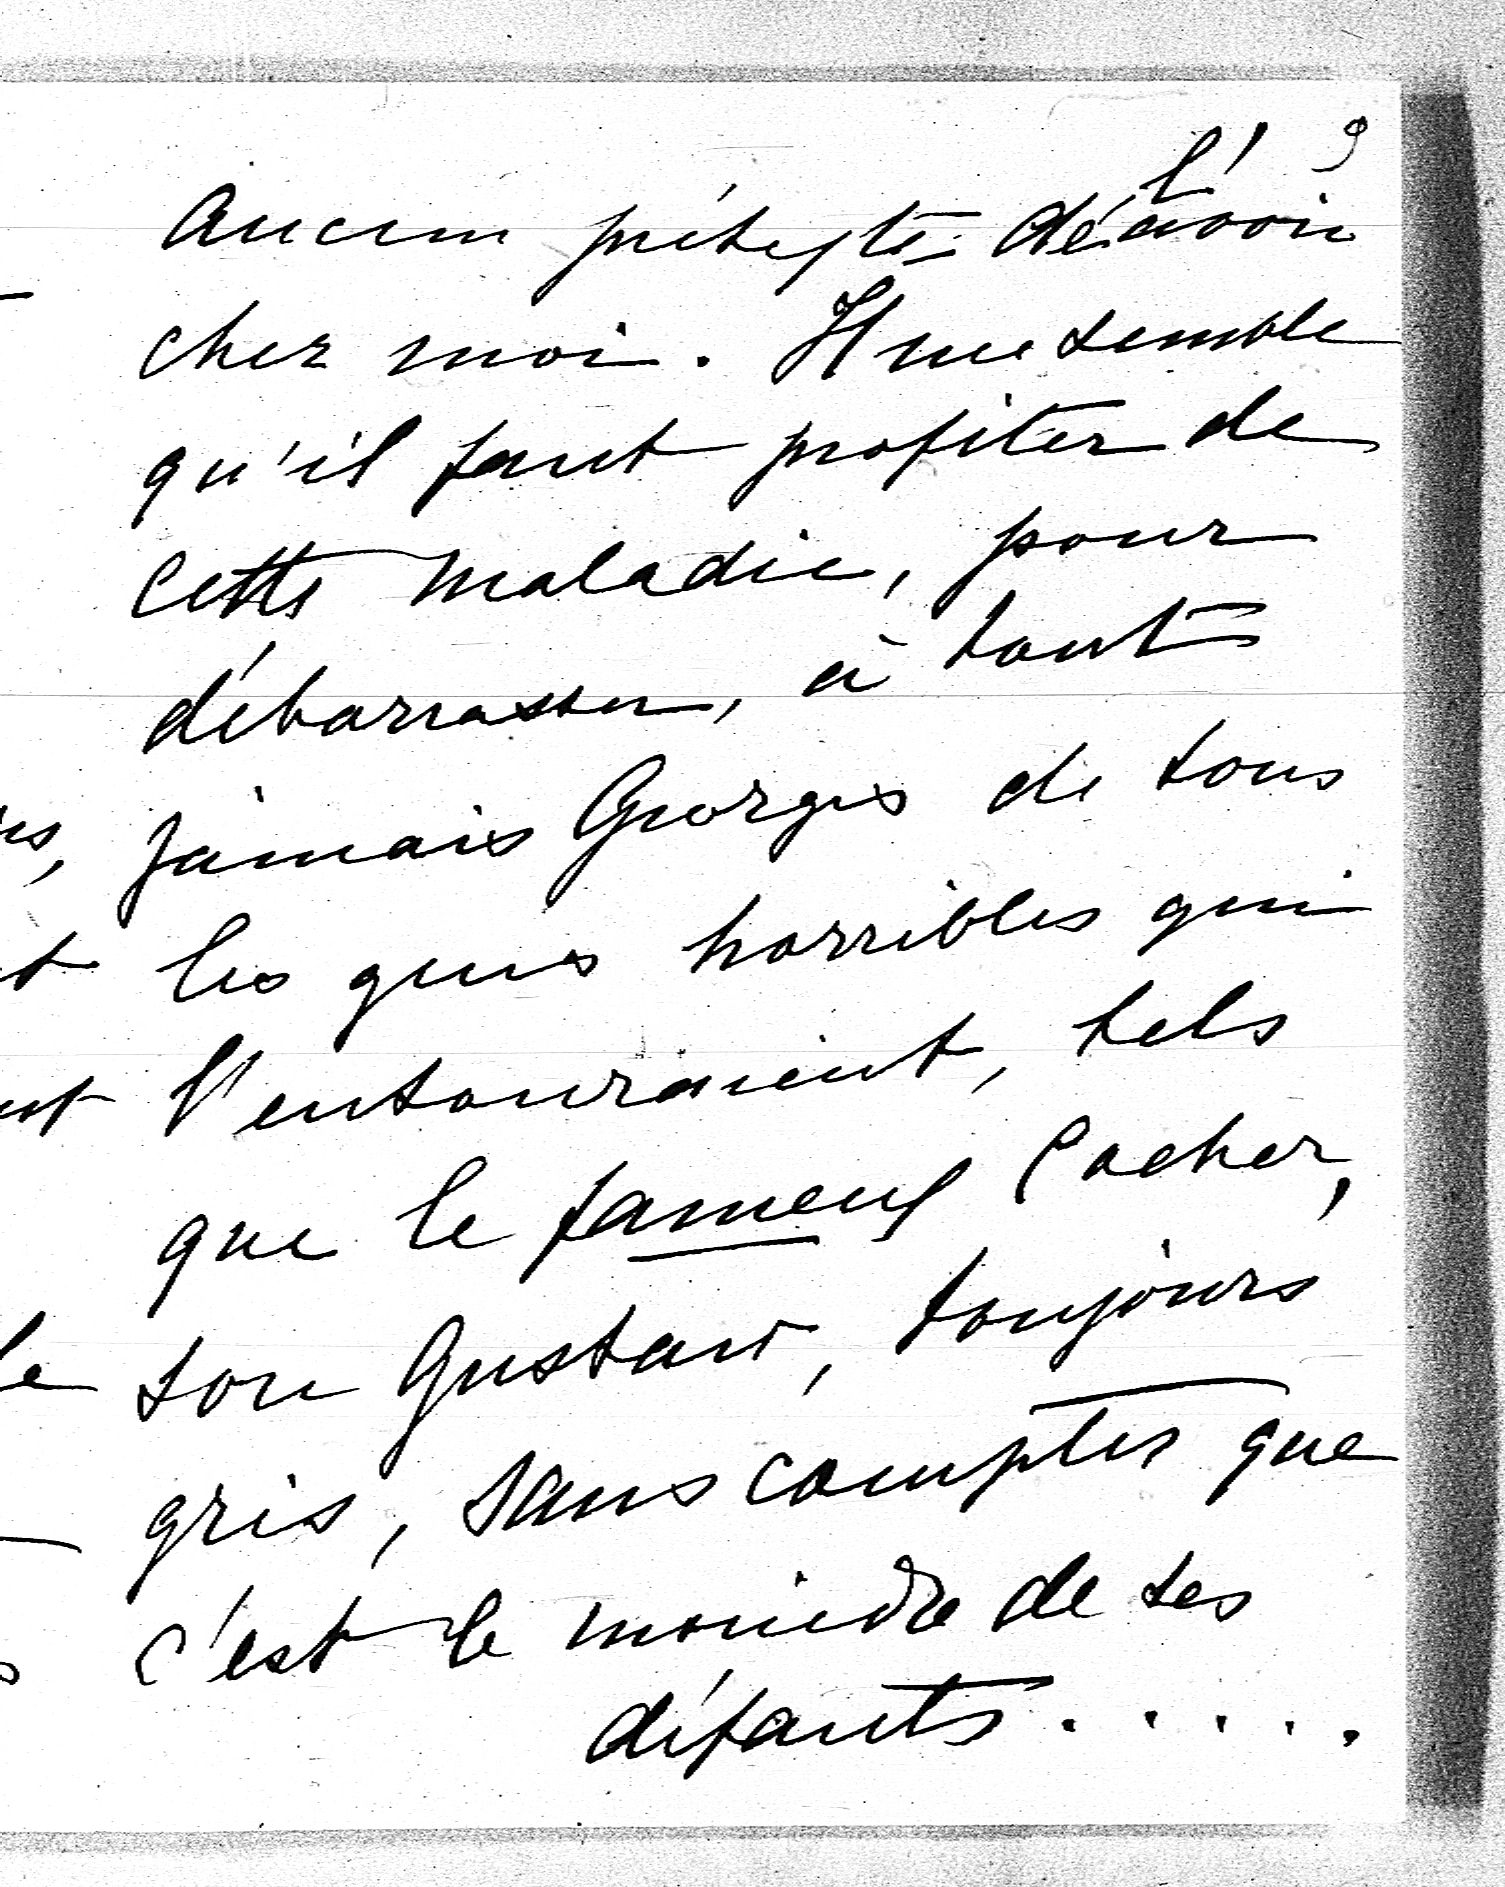 9
aucun prétexte de l'avoir
chez moi. Il me semble
qu'il faut profiter de
cette maladie, pour
débarrasser, à tout
jamais Georges de tous
les gens horribles qui
l'entouraient, tels
que le fameux Cocher,
son Gustave, toujours
gris, sans compter que
c'est le moindre de ses
défauts . . . . .